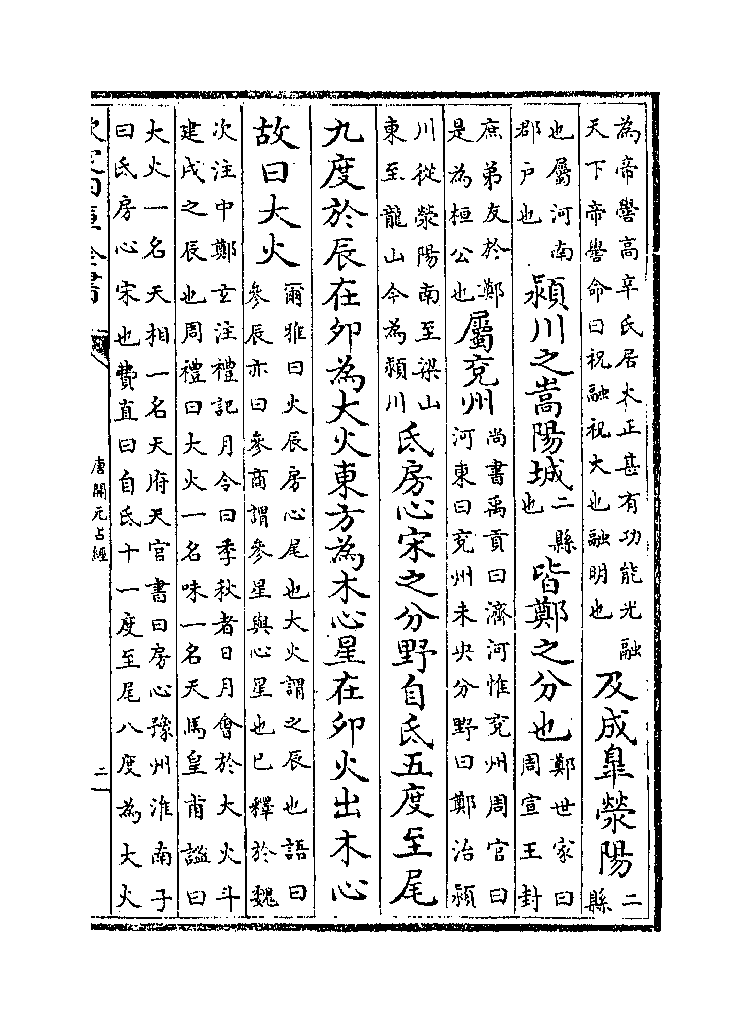 為帝嚳高辛氏居火正甚有功能光融天下帝嚳命曰祝融祝大也融明也及成臯滎陽二縣
也屬河南郡户也潁川之嵩陽城二縣也皆鄭之分也鄭世家曰周宣王封
庶弟友於鄭是為桓公也屬兖州尚書禹貢曰濟河惟兖州周官曰河東曰兖州未央分野曰鄭治潁
川從滎陽南至梁山東至龍山今為潁川氐房心宋之分野自氐五度至尾
九度於辰在卯為大火東方為木心星在卯火出木心
故曰大火爾雅曰火辰房心尾也大火謂之辰也語曰參辰亦曰參商謂參星與心星也已釋於魏
次注中鄭玄注禮記月令曰季秋者日月會於大火斗建戌之辰也周禮曰大火一名味一名天馬皇甫謐曰
大火一名天相一名天府天官書曰房心豫州淮南子曰氐房心宋也費直曰自氐十一度至尾八度為大火
全書
唐開元占經
二